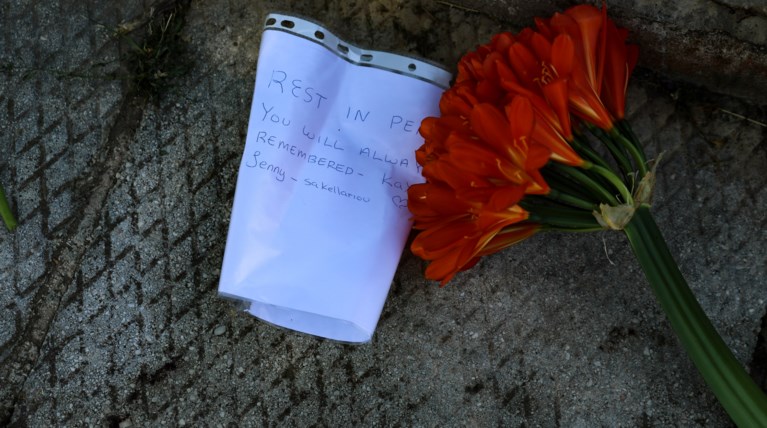 REST IN PE
YOU WILL ALLWA
REMEMBERED- Ka
Jenny - sakellariou